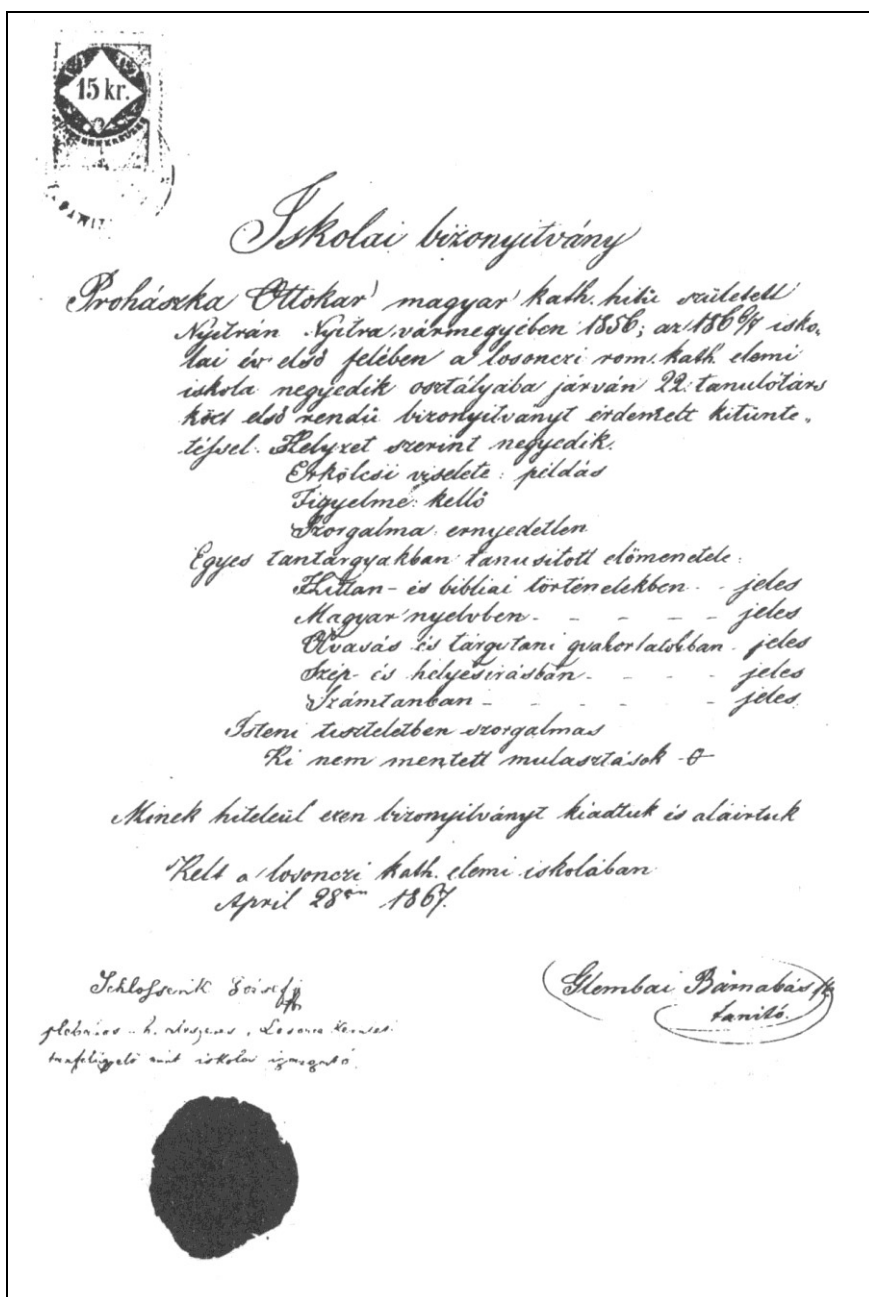 15 kr.
Iskolai bizonyitvány
Prohászka Ottokár magyar kath. hitü született
Nyitrán Nyitra vármegyében 1856; az 186 6/7 isko-
lai év első felében a losonczi rom. kath. elemi
iskola negyedik osztályába járván 22 tanulótárs
közt első rendü bizonyitványt érdemlett kitünte-
téssel. Helyzet szerint negyedik.
Erkölcsi viselete: példás
Figyelme: kellő
Szorgalma: ernyedetlen
Egyes tantárgyakban tanusitott előmenetele:
Hittan- és bibliai történetekben - - jeles
Magyar nyelvben - - - - - jeles
Olvasás és tárgytani gyakorlatokban - jeles
Szép- és helyesirásban - - - jeles
Számtanban - - - - - jeles
Isteni tiszteletben szorgalmas
Ki nem mentett mulasztások 0
Minek hiteleül ezen bizonyitványt kiadtuk és aláirtuk
Kelt a losonczi kath. elemi iskolában
April 28án 1867.
Schlossarik József
plébános h. alesperes, Losoncz kerületi
tanfelügyelő mint iskolai igazgató.
Glembai Bárnabás
tanitó.